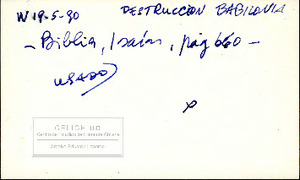 W 19-5-90 DESTRUCCION BABILONIA
- Biblia, Isaías, pág 660 -
USADO
CELICH UC